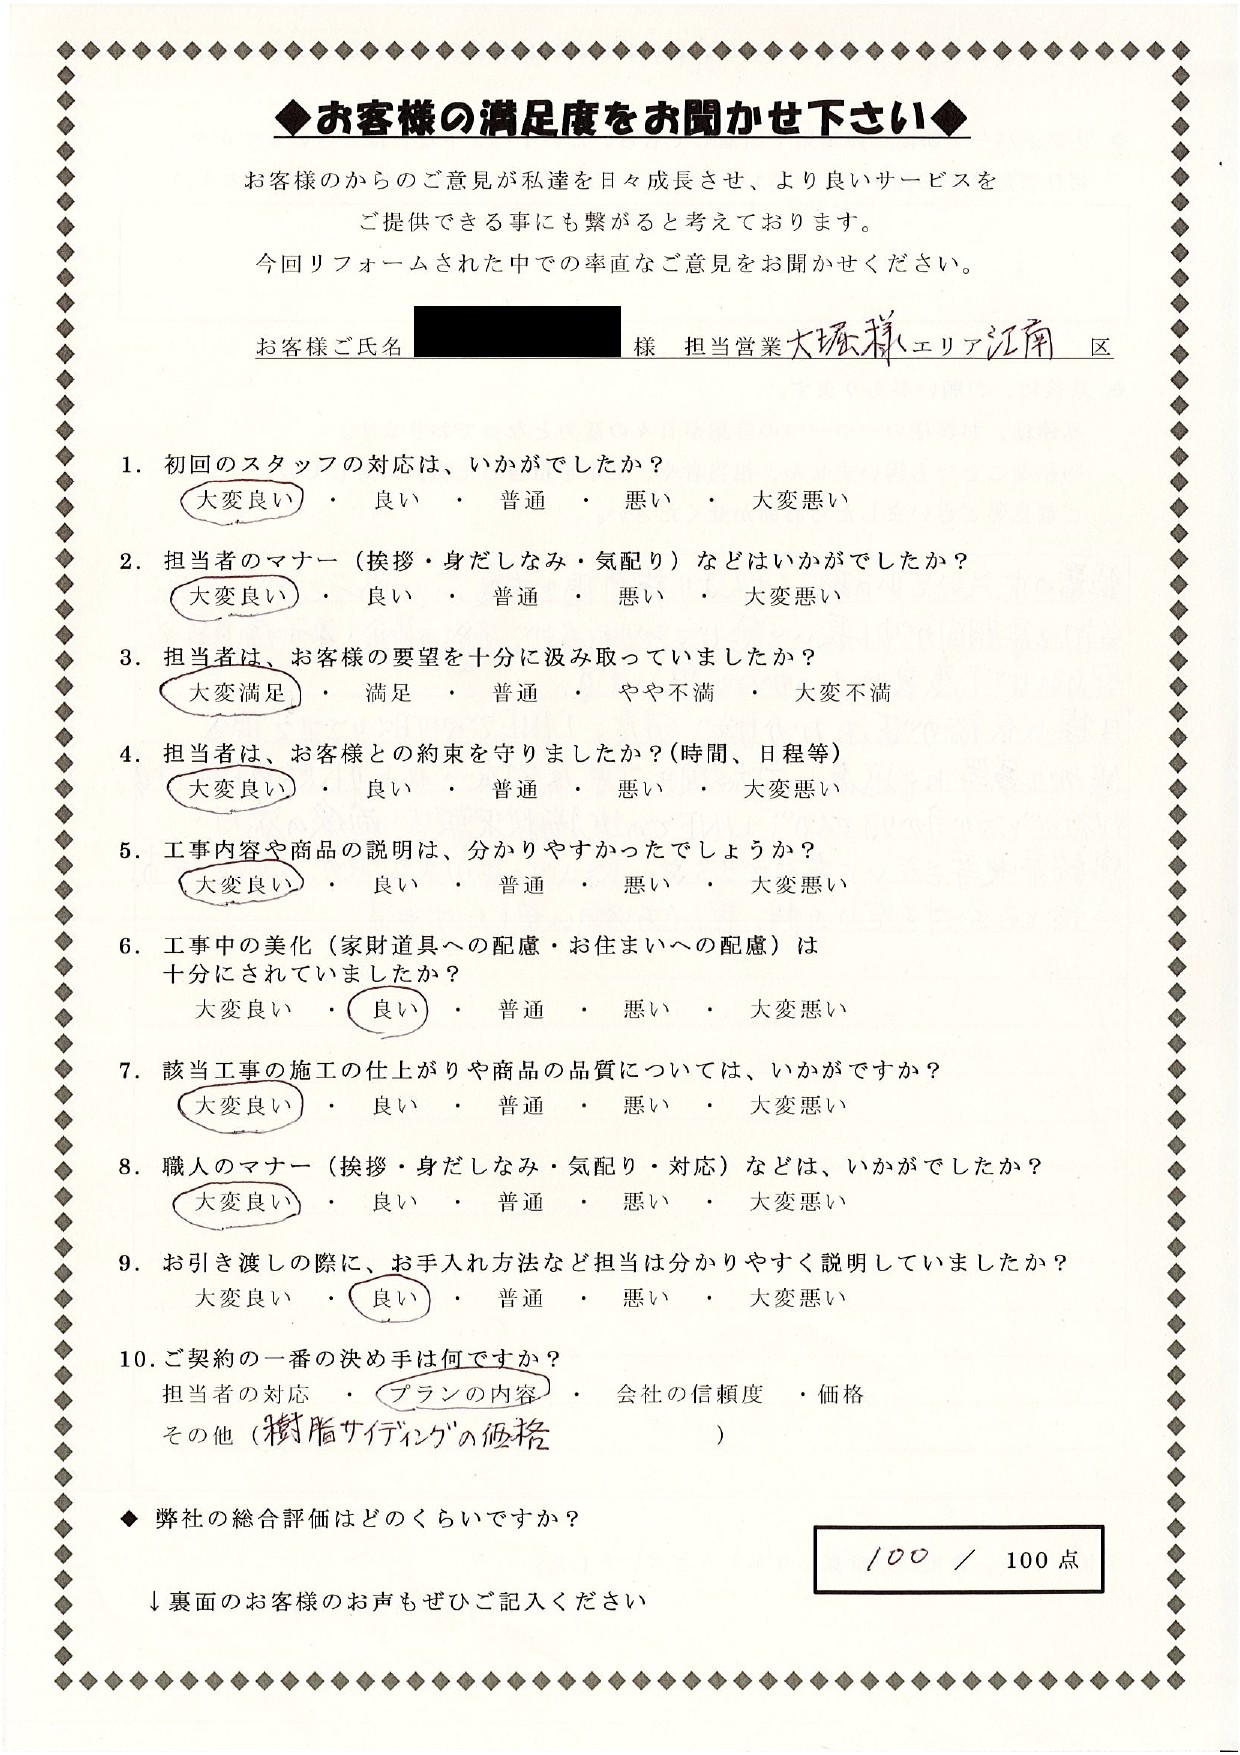 ◆お客様の満足度をお聞かせ下さい◆
お客様のからのご意見が私達を日々成長させ、より良いサービスを
ご提供できる事にも繋がると考えております。
今回リフォームされた中での率直なご意見をお聞かせください。
お客様ご氏名 様 担当営業 大堀様 エリア 江南 区
1. 初回のスタッフの対応は、いかがでしたか？
大変良い ・ 良い ・ 普通 ・ 悪い ・ 大変悪い
2. 担当者のマナー（挨拶・身だしなみ・気配り）などはいかがでしたか？
大変良い ・ 良い ・ 普通 ・ 悪い ・ 大変悪い
3. 担当者は、お客様の要望を十分に汲み取っていましたか？
大変満足 ・ 満足 ・ 普通 ・ やや不満 ・ 大変不満
4. 担当者は、お客様との約束を守りましたか？(時間、日程等)
大変良い ・ 良い ・ 普通 ・ 悪い ・ 大変悪い
5. 工事内容や商品の説明は、分かりやすかったでしょうか？
大変良い ・ 良い ・ 普通 ・ 悪い ・ 大変悪い
6. 工事中の美化（家財道具への配慮・お住まいへの配慮）は
十分にされていましたか？
大変良い ・ 良い ・ 普通 ・ 悪い ・ 大変悪い
7. 該当工事の施工の仕上がりや商品の品質については、いかがですか？
大変良い ・ 良い ・ 普通 ・ 悪い ・ 大変悪い
8. 職人のマナー（挨拶・身だしなみ・気配り・対応）などは、いかがでしたか？
大変良い ・ 良い ・ 普通 ・ 悪い ・ 大変悪い
9. お引き渡しの際に、お手入れ方法など担当は分かりやすく説明していましたか？
大変良い ・ 良い ・ 普通 ・ 悪い ・ 大変悪い
10. ご契約の一番の決め手は何ですか？
担当者の対応 ・ プランの内容 ・ 会社の信頼度 ・価格
その他（樹脂サイディングの価格 ）
◆ 弊社の総合評価はどのくらいですか？
100 ／ 100 点
↓裏面のお客様のお声もぜひご記入ください